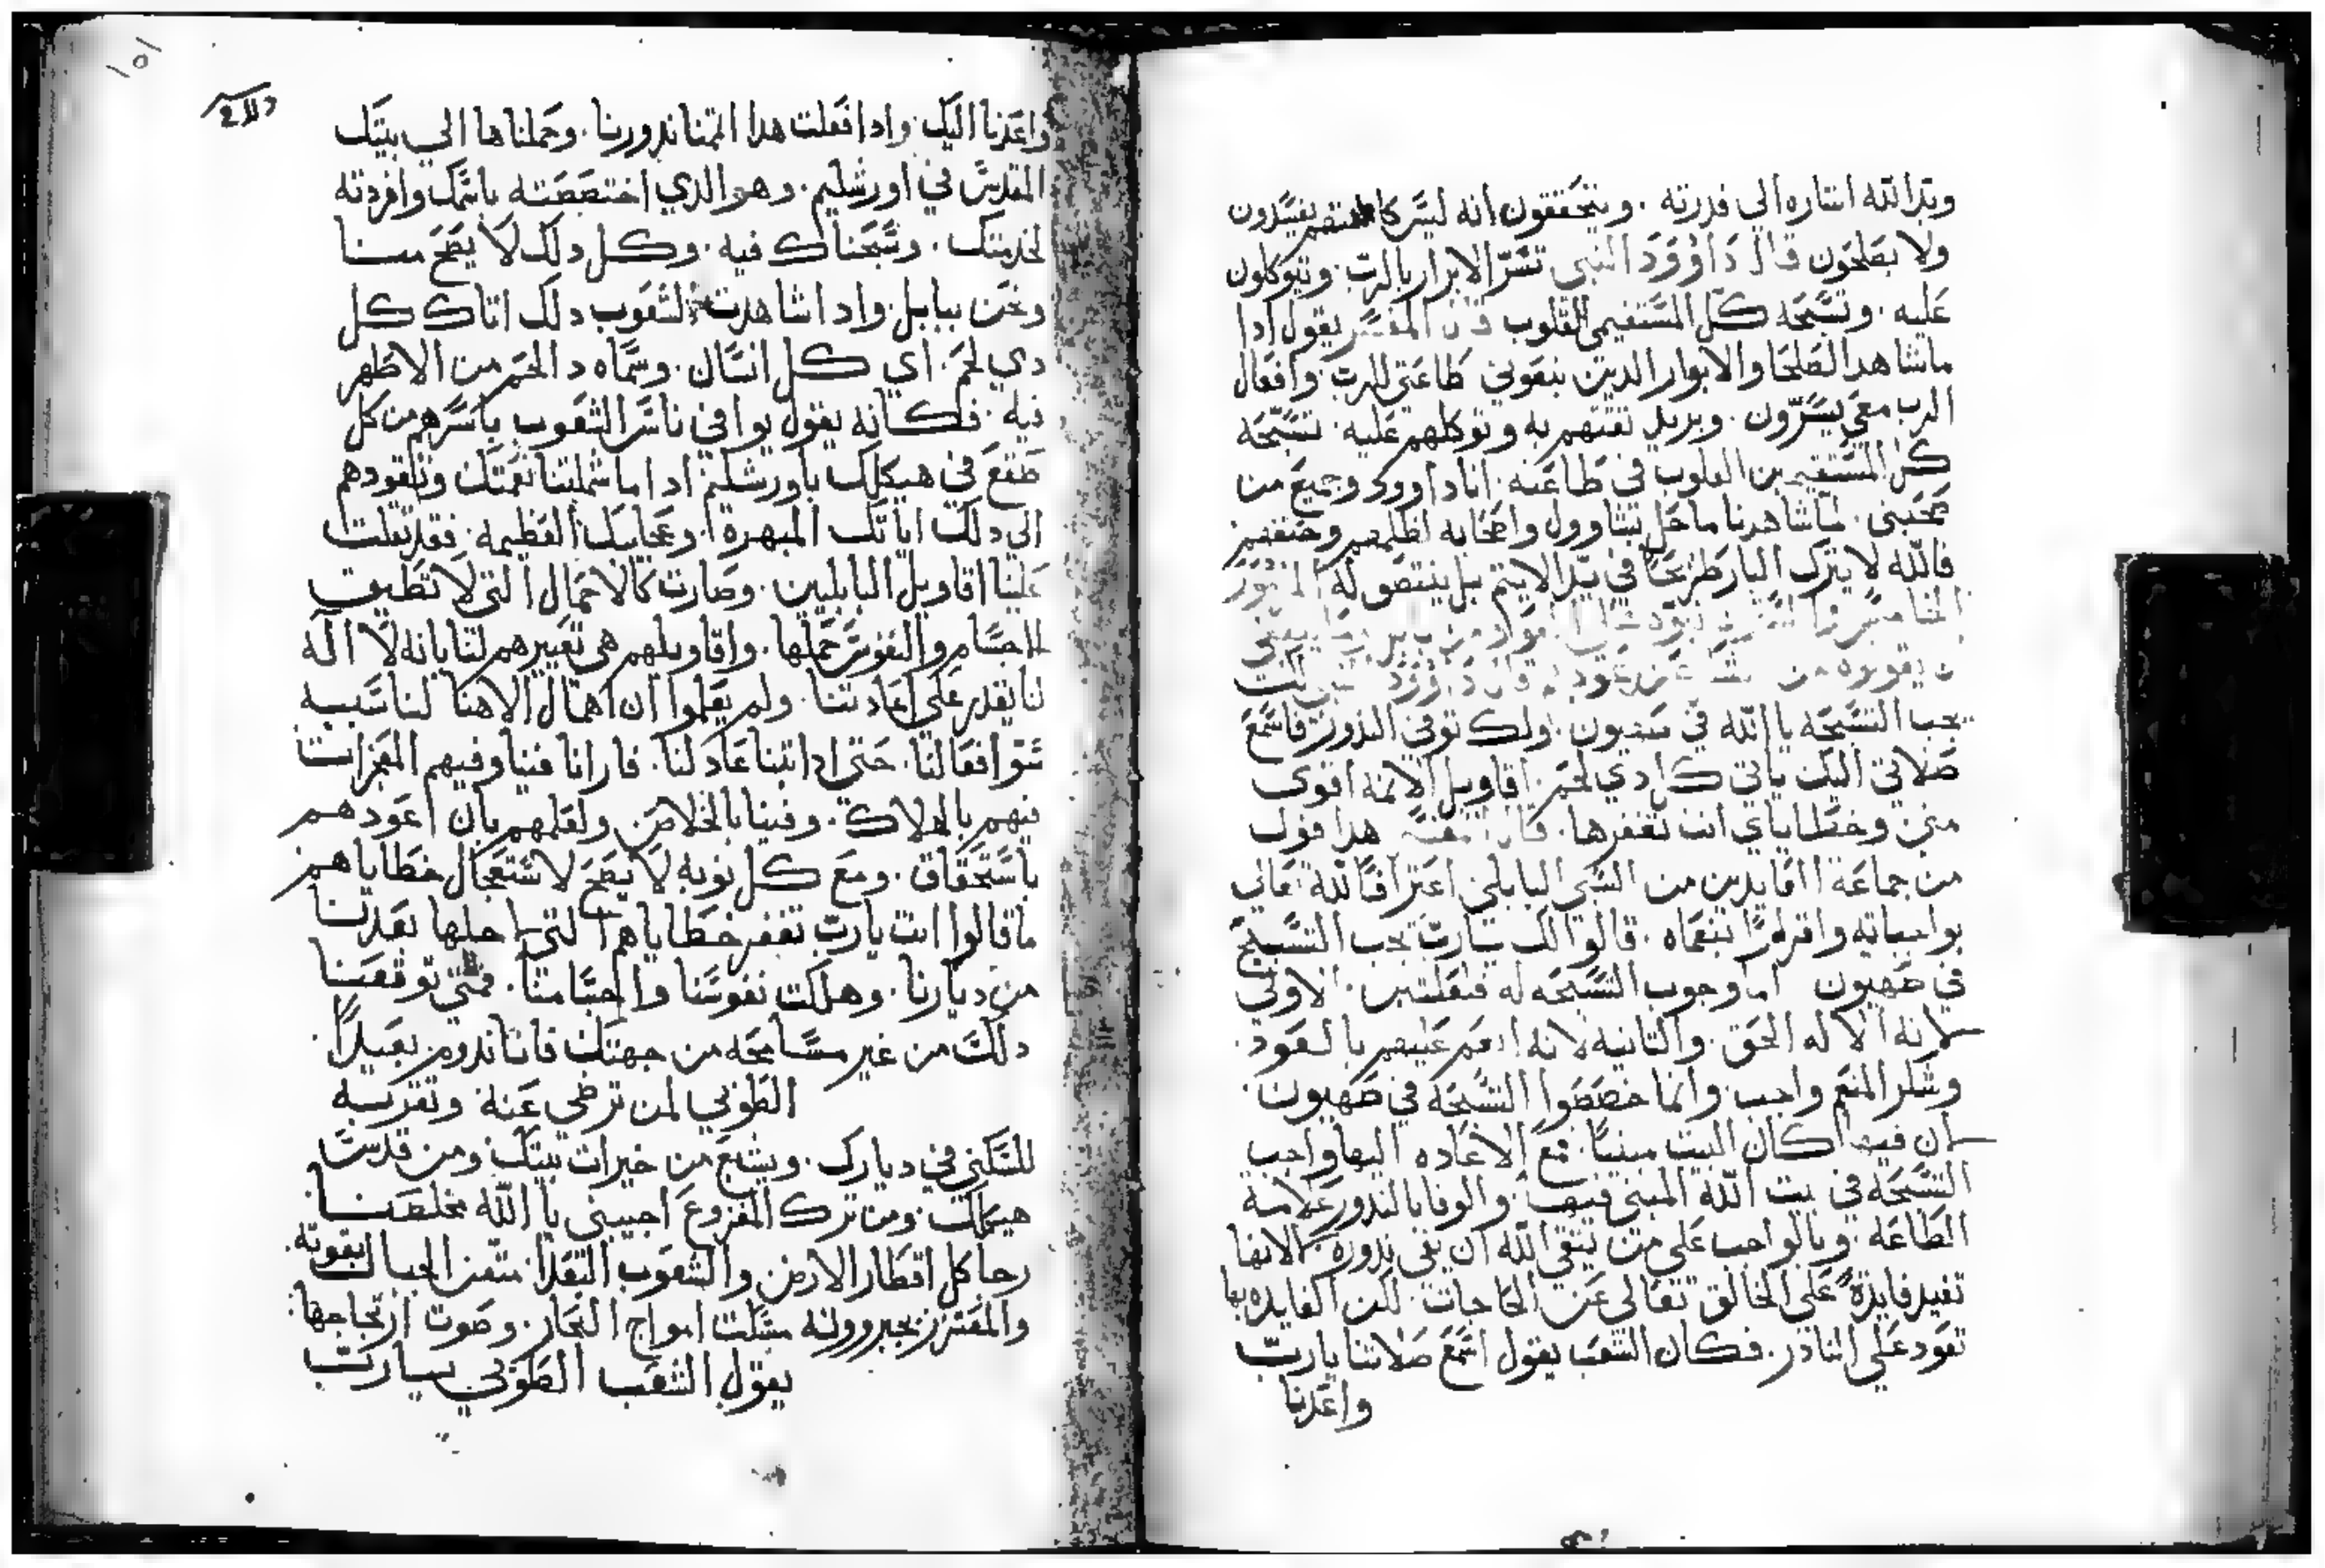 ويد الله اشاره الي قدرته . ويتحققون انه ليس كا يفسدون
ولا يصلحون قال داوود النبى تسر الابرار بالرب . ويتوكلون
عليه . وتسبحه كل المستقيمى القلوب المفسر يقول ادا
ما شاهد الصلحا والابرار الدين يتبعونى طاعتى للرب . وافعال
الرب معى يسرون . ويريد تقتهم به وتوكلهم عليه . تسبحه
كل المستقيمين القلوب فى طاعته . انا داوود وجميع من
صحبنى . لما شاهدنا ما حل بشاوول واصحابه لظلمهم
فالله لا يترك البار طريحا في يد الاتيم بل ينتصف له المزمور
الخامس

يجب التسبحه يا الله في صهيون . ولك توفي الندور فاسمع
صلاتي اليك ياتي كل دي لحم . اقاويل الاتمه اقوى
منى وخطاياي انت تغفرها . قال المفسر هدا قول
من جماعة العايدين من السبى البابلى اعترافا لله تعالى
بواجباته واقرارا بنعماه . قالوا لك يارب يجب التسبيح
في صهيون اما وجوب التسبحه له فلعلتين . الاولى
لانه الاله الحق . والتانيه لانه انعم عليهم بالعود .
وشكر المنعم واجب . وانما خصصوا التسبحه في صهيون .
لان فيها كان البيت مبنيا . فمع الاعاده اليها واجب
التسبحه في بيت الله المبنى فيها . والوفا بالندور علامة
الطاعه . وبالواجب على من يتقي الله ان يفى ندوره . لا لانها
تفيد فايدة على الخالق تعالى عن الحاجات . لكن الفايده بها
تعود على النادر . فكان الشعب يقول اسمع صلاتنا يا رب
واعدنا
دلالك
١٥١
واعدنا اليك . وادا فعلت هدا اتمنا ندورنا . وحملناها الي بيتك
المقدس في اورشليم . وهو الدي اختصصته باسمك وافردته
لخدمتك . وسبحناك فيه . وكل دلك لا يصح منا
ونحن ببابل . وادا شاهدت الشعوب دلك اتاك كل
دي لحم . اي كل انسان . وسماه د الحم من الاظهر
فيه . فكانه يقول يوافي ناشر الشعوب باسرهم من كل
صقع في هيكلك باورشليم ادا ما شملتنا نعمتك وتقودهم
الي دلك اياتك المبهرة . وعجايبك العظيمه . فقد تقلت
علينا اقاويل البابليين . وصارت كالاحمال التى لا تطيق
الاجسام والنفوس حملها . واقاويلهم هي تعييرهم لنا بانه لا اله
لنا يقدر على اعادتنا . ولم يعلموا ان اهمال الاهنا لنا سببه
سو افعالنا . حتى ادا تبنا عاد لنا . فارانا فينا وفيهم المعجزات
فيهم بالهلاك . وفينا بالخلاص . ولعلمهم بان اعودهم
باستحقاق . ومع كل توبه لا يصح لاستعجال خطاياهم
ما قالوا انت يارب تغفر خطاياهم التى من اجلها بعدنا
من ديارنا . وهلكت نفوسنا واجسامنا . فمتى توقعنا
دلك من غير مسامحه من جهتك فاننا ندوم بعيدا .
الطوبي لمن ترضي عنه وتقربه
للسكنى في ديارك . ويشبع من خيرات بيتك ومن قدس
هيكلك ومن ترك المفزوع اجيبنى يا الله مخلصنا
رجا كل اقطار الارض والشعوب البعدا . متقن الجبال بقوته
والمعتزز بجبروته مسكت امواج البحار . وصوت ارتجاجها
يقول الشعب الطوبي يارب